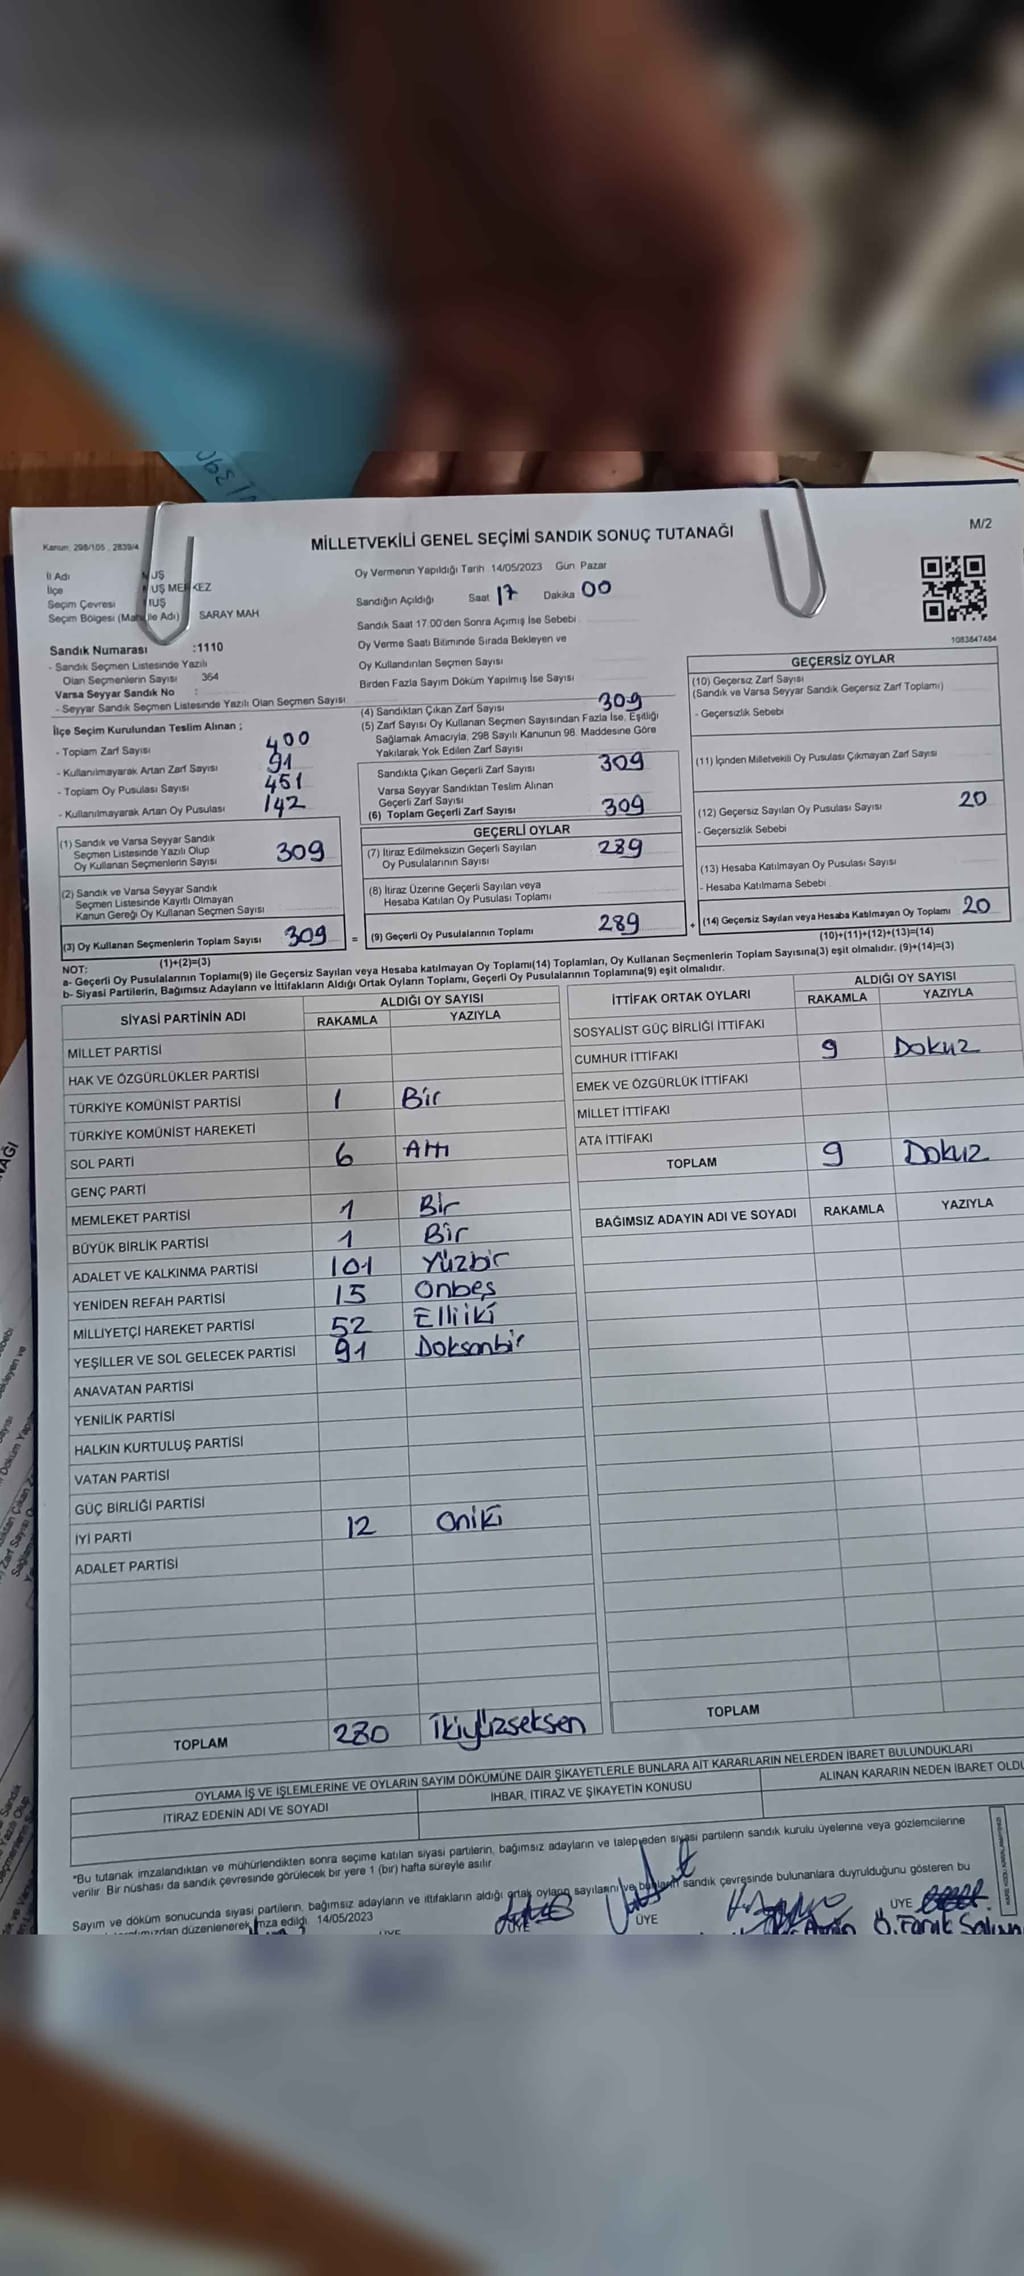 Kanun: 298/105 , 2839/4
MİLLETVEKİLİ GENEL SEÇİMİ SANDIK SONUÇ TUTANAĞI
M/2
İl Adı
İlçe
Seçim Çevresi
Seçim Bölgesi SARAY MAH
Oy Vermenin Yapıldığı Tarih 14/05/2023 Gün Pazar
Sandığın Açıldığı Saat 17 Dakika 00
Sandık Saat 17:00'den Sonra Açımış İse Sebebi
Oy Verme Saati Bitiminde Sırada Bekleyen ve
Oy Kullandırılan Seçmen Sayısı
Birden Fazla Sayım Döküm Yapılmış İse Sayısı
1083847484
Sandık Numarası :1110
- Sandık Seçmen Listesinde Yazılı
Olan Seçmenlerin Sayısı 364
Varsa Seyyar Sandık No :
- Seyyar Sandık Seçmen Listesinde Yazılı Olan Seçmen Sayısı
İlçe Seçim Kurulundan Teslim Alınan ;
- Toplam Zarf Sayısı 400
- Kullanılmayarak Artan Zarf Sayısı 91
- Toplam Oy Pusulası Sayısı 451
- Kullanılmayarak Artan Oy Pusulası 142
(1) Sandık ve Varsa Seyyar Sandık
Seçmen Listesinde Yazılı Olup
Oy Kullanan Seçmenlerin Sayısı 309
(2) Sandık ve Varsa Seyyar Sandık
Seçmen Listesinde Kayıtlı Olmayan
Kanun Gereği Oy Kullanan Seçmen Sayısı
(3) Oy Kullanan Seçmenlerin Toplam Sayısı 309 =
(1)+(2)=(3)
(4) Sandıktan Çıkan Zarf Sayısı 309
(5) Zarf Sayısı Oy Kullanan Seçmen Sayısından Fazla İse, Eşitliği
Sağlamak Amacıyla, 298 Sayılı Kanunun 98. Maddesine Göre
Yakılarak Yok Edilen Zarf Sayısı
Sandıkta Çıkan Geçerli Zarf Sayısı 309
Varsa Seyyar Sandıktan Teslim Alınan
Geçerli Zarf Sayısı
(6) Toplam Geçerli Zarf Sayısı 309
GEÇERLİ OYLAR
(7) İtiraz Edilmeksizin Geçerli Sayılan
Oy Pusulalarının Sayısı 289
(8) İtiraz Üzerine Geçerli Sayılan veya
Hesaba Katılan Oy Pusulası Toplamı
(9) Geçerli Oy Pusulalarının Toplamı 289 +
GEÇERSİZ OYLAR
(10) Geçersiz Zarf Sayısı
(Sandık ve Varsa Seyyar Sandık Geçersiz Zarf Toplamı)
- Geçersizlik Sebebi
(11) İçinden Milletvekili Oy Pusulası Çıkmayan Zarf Sayısı
(12) Geçersiz Sayılan Oy Pusulası Sayısı 20
- Geçersizlik Sebebi
(13) Hesaba Katılmayan Oy Pusulası Sayısı
- Hesaba Katılmama Sebebi
(14) Geçersiz Sayılan veya Hesaba Katılmayan Oy Toplamı 20
(10)+(11)+(12)+(13)=(14)
NOT:
a- Geçerli Oy Pusulalarının Toplamı(9) ile Geçersiz Sayılan veya Hesaba katılmayan Oy Toplamı(14) Toplamları, Oy Kullanan Seçmenlerin Toplam Sayısına(3) eşit olmalıdır. (9)+(14)=(3)
b- Siyasi Partilerin, Bağımsız Adayların ve İttifakların Aldığı Ortak Oyların Toplamı, Geçerli Oy Pusulalarının Toplamına(9) eşit olmalıdır.
SİYASİ PARTİNİN ADI ALDIĞI OY SAYISI
RAKAMLA YAZIYLA
MİLLET PARTİSİ
HAK VE ÖZGÜRLÜKLER PARTİSİ
TÜRKİYE KOMÜNİST PARTİSİ 1 Bir
TÜRKİYE KOMÜNİST HAREKETİ
SOL PARTİ 6 Altı
GENÇ PARTİ
MEMLEKET PARTİSİ 1 Bir
BÜYÜK BİRLİK PARTİSİ 1 Bir
ADALET VE KALKINMA PARTİSİ 101 Yüzbir
YENİDEN REFAH PARTİSİ 15 Onbeş
MİLLİYETÇİ HAREKET PARTİSİ 52 Elliiki
YEŞİLLER VE SOL GELECEK PARTİSİ 91 Doksanbir
ANAVATAN PARTİSİ
YENİLİK PARTİSİ
HALKIN KURTULUŞ PARTİSİ
VATAN PARTİSİ
GÜÇ BİRLİĞİ PARTİSİ
İYİ PARTİ 12 Oniki
ADALET PARTİSİ
TOPLAM 280 İkiyüzseksen
İTTİFAK ORTAK OYLARI ALDIĞI OY SAYISI
RAKAMLA YAZIYLA
SOSYALİST GÜÇ BİRLİĞİ İTTİFAKI
CUMHUR İTTİFAKI 9 Dokuz
EMEK VE ÖZGÜRLÜK İTTİFAKI
MİLLET İTTİFAKI
ATA İTTİFAKI
TOPLAM 9 Dokuz
BAĞIMSIZ ADAYIN ADI VE SOYADI RAKAMLA YAZIYLA
TOPLAM
OYLAMA İŞ VE İŞLEMLERİNE VE OYLARIN SAYIM DÖKÜMÜNE DAİR ŞİKAYETLERLE BUNLARA AİT KARARLARIN NELERDEN İBARET BULUNDUKLARI
İTİRAZ EDENİN ADI VE SOYADI
İHBAR, İTİRAZ VE ŞİKAYETİN KONUSU
ALINAN KARARIN NEDEN İBARET OLDU
"Bu tutanak imzalandıktan ve mühürlendikten sonra seçime katılan siyasi partilerin, bağımsız adayların ve talep eden siyasi partilerin sandık kurulu üyelerine veya gözlemcilerine
verilir. Bir nüshası da sandık çevresinde görülecek bir yere 1 (bir) hafta süreyle asılır
Sayım ve döküm sonucunda siyasi partilerin, bağımsız adayların ve ittifakların aldığı ortak oyların sayılarını ve bunların sandık çevresinde bulunanlara duyrulduğunu gösteren bu
düzenlenerek imza edildi. 14/05/2023
ÜYE ÜYE ÜYE ÜYE